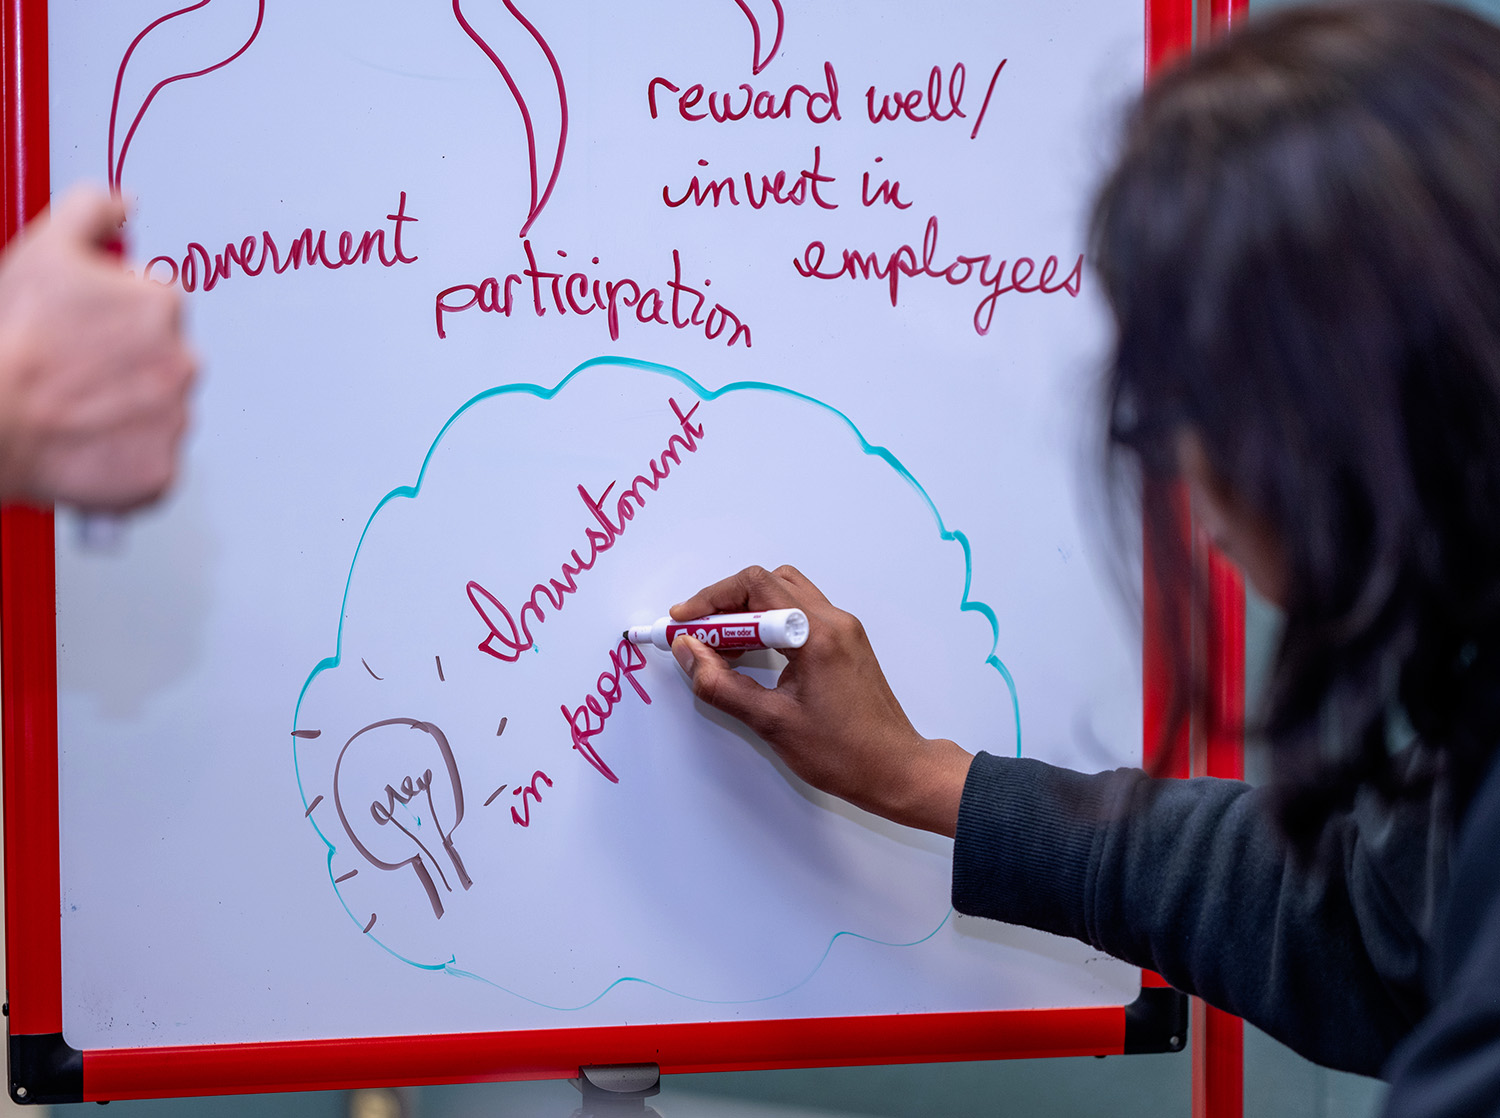 reward well/
invest in
employees
powerment
participation
Investment
in peop
low odor